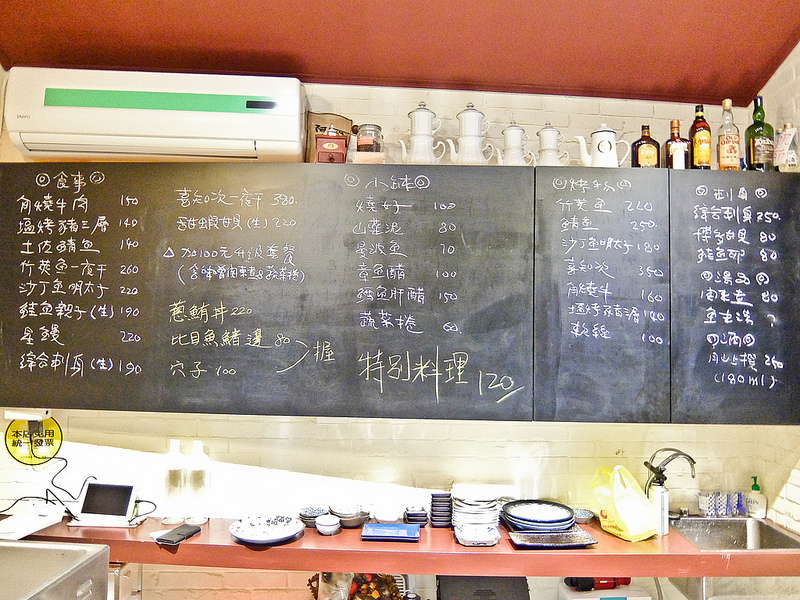 ◎食事◎
角燒牛肉 140
塩烤豬三層 140
土佐鯖魚 140
竹莢魚一夜干 260
沙丁魚明太子 220
鮭魚親子(生) 190
星鰻 220
綜合刺身(生) 190
喜知次一夜干 380
甜蝦 (生) 220
△加100元升級套餐
蔥鮪丼 220
比目魚鰭邊 80
穴子 100
握
◎小缽◎
100
山藥泥 80
70
章魚醋 100
鮭魚肝醋 150
蔬菜捲 60
特別料理 120
◎烤物◎
竹莢魚 220
鯖魚 250
沙丁魚明太子 180
喜知次 350
角燒牛 160
塩烤豬三層 140
100
◎刺身◎
綜合刺身 250
80
鮭魚卵 80
◎湯品◎
80
?
◎酒◎
260
(180ml)
本店免用
統一發票